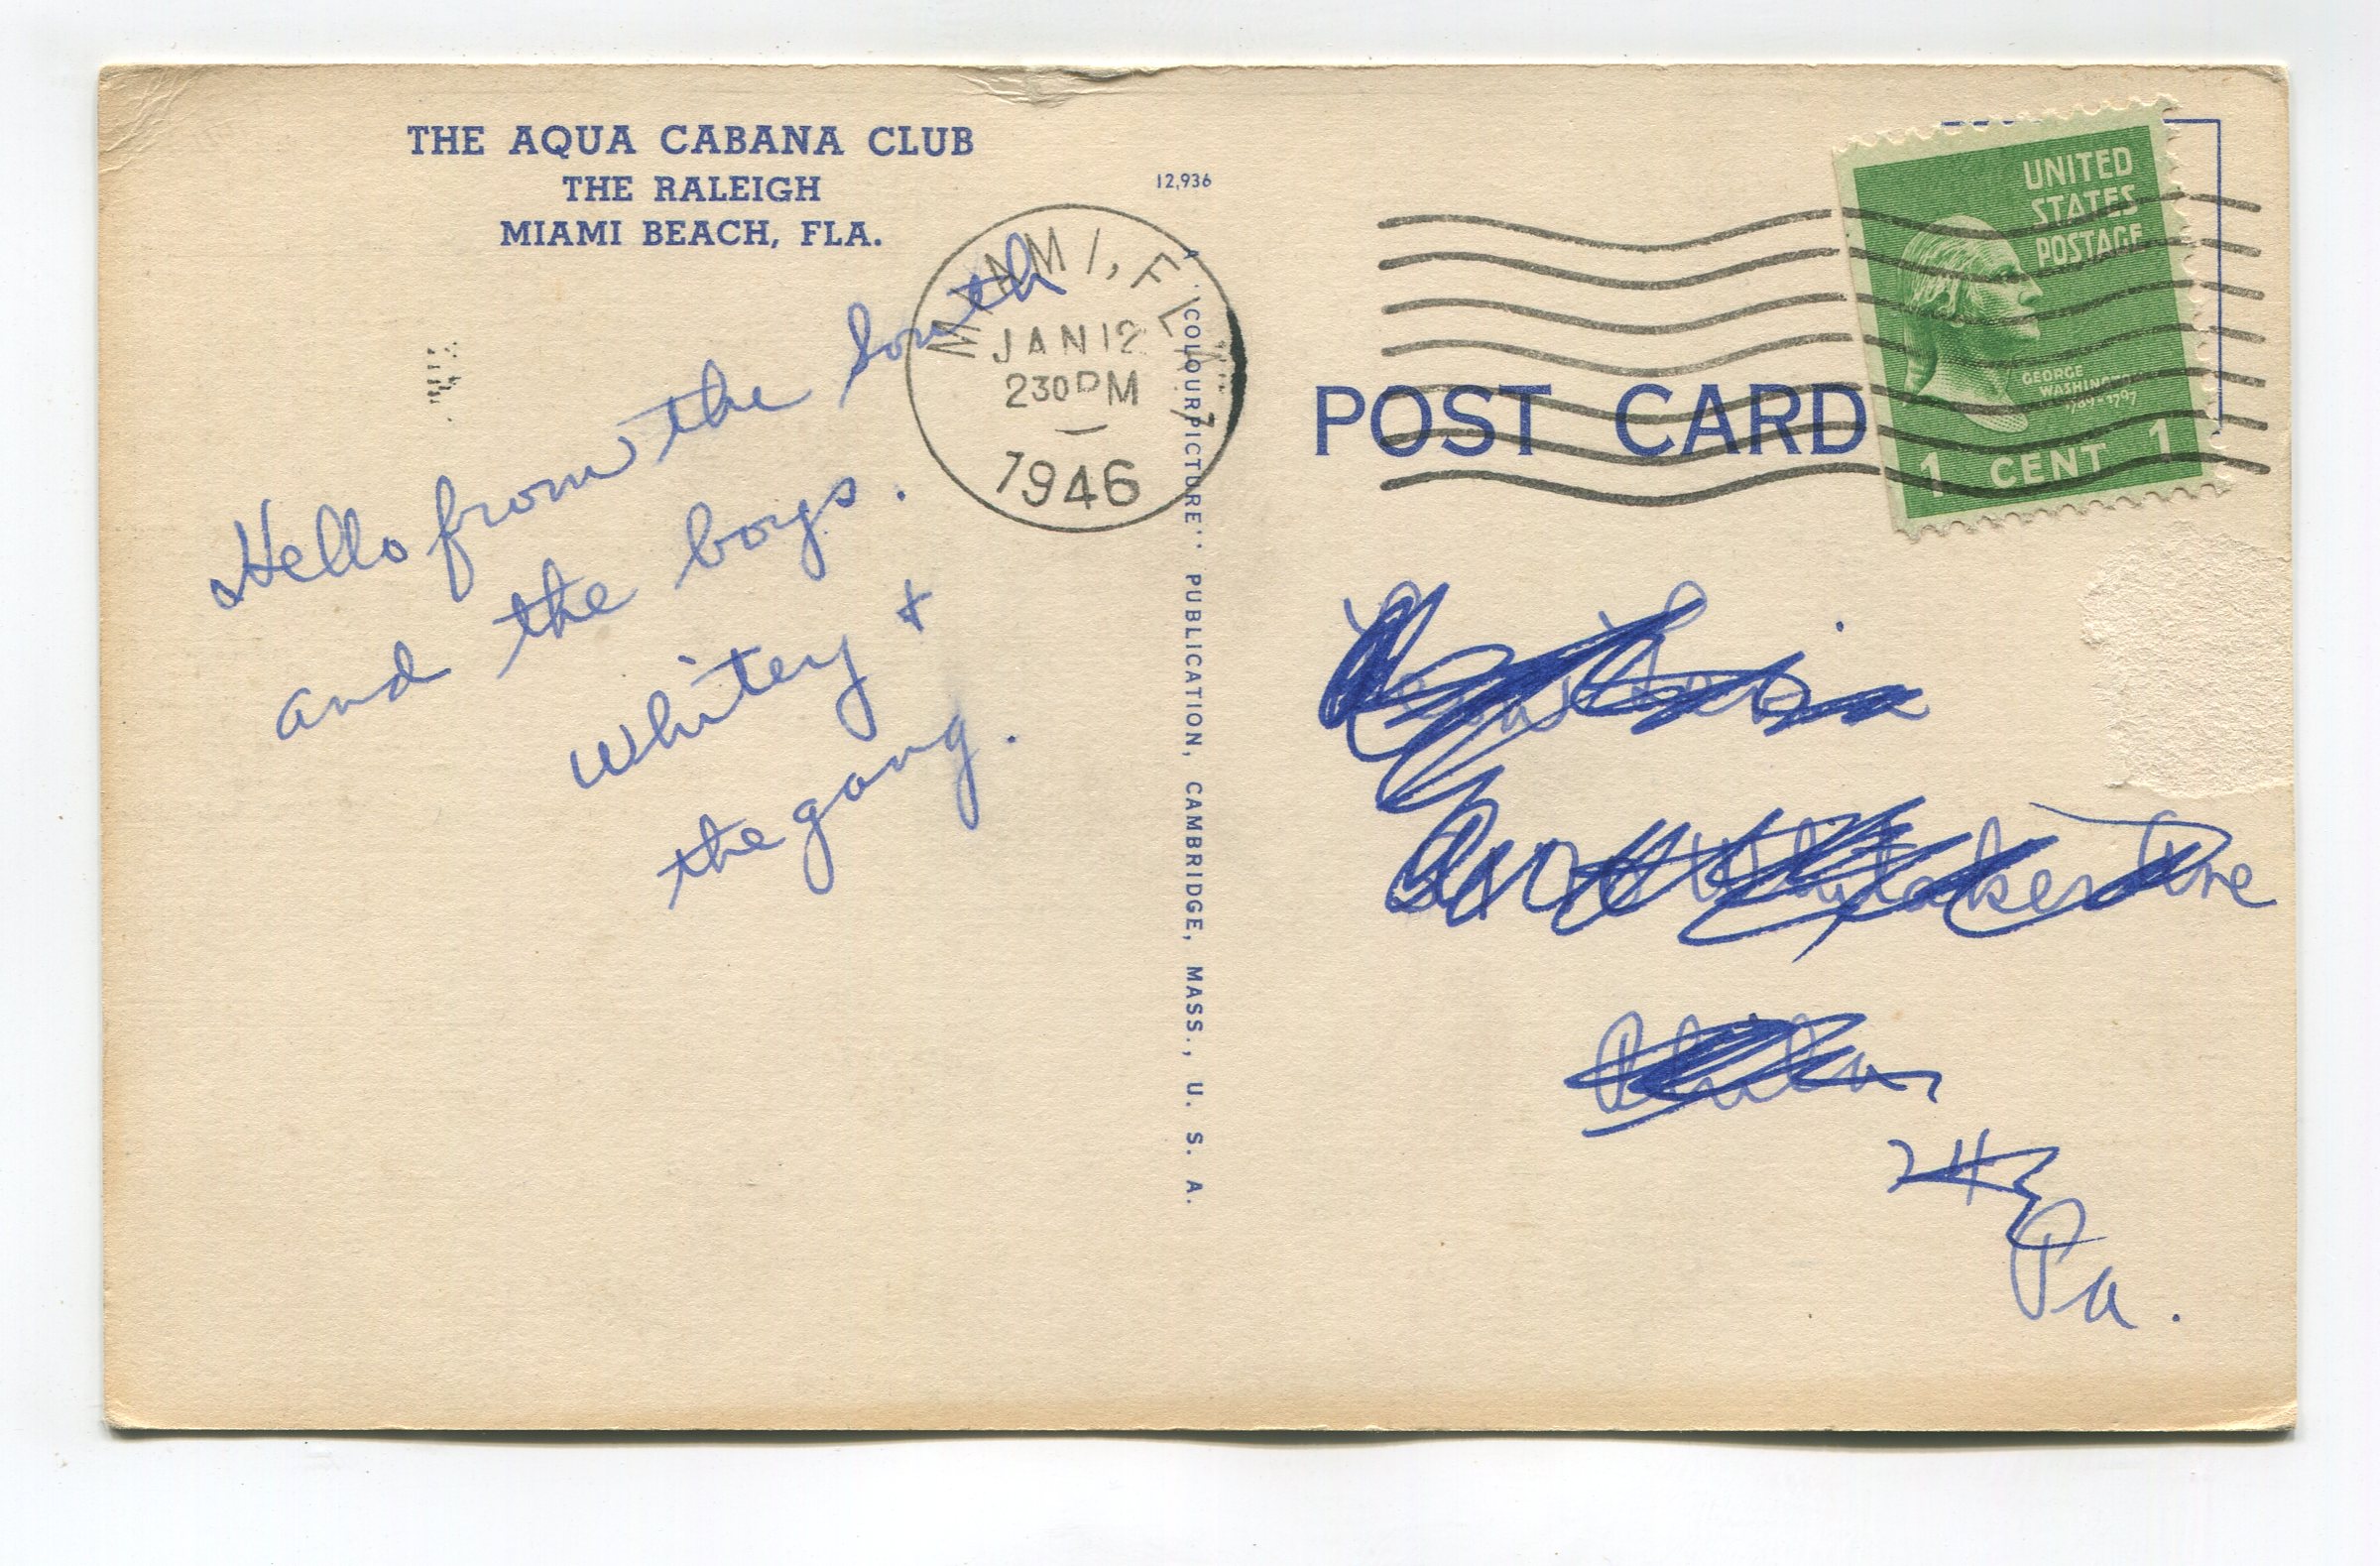 THE AQUA CABANA CLUB
THE RALEIGH
MIAMI BEACH, FLA.
12,936
Hello from the South
and the boys.
Whitey &
the gang.
MIAMI, FLA.
JAN 12
230 PM
1946
A "COLOURPICTURE" PUBLICATION, CAMBRIDGE, MASS., U. S. A.
POST CARD
UNITED
STATES
POSTAGE
GEORGE
WASHINGTON
1789-1797
1 CENT 1
Whitaker Ave
Phila
24
Pa.